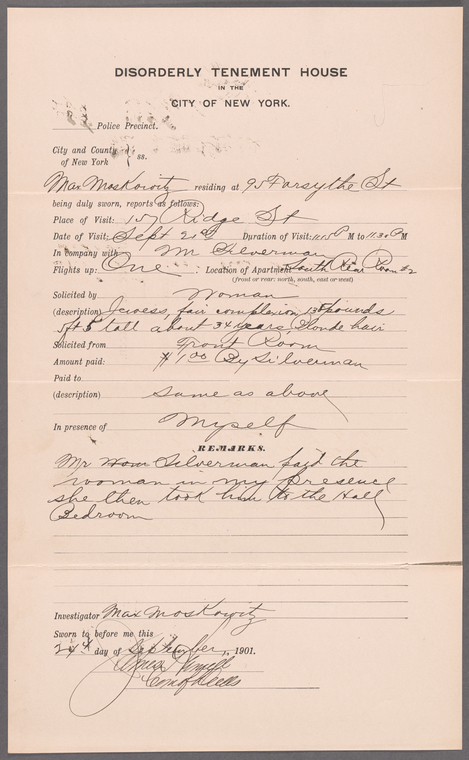 DISORDERLY TENEMENT HOUSE
IN THE
CITY OF NEW YORK.
Police Precinct.
City and County
of New York } ss.
Max Moskowitz residing at 95 Forsythe St
being duly sworn, reports as follows:
Place of Visit: 157 Ridge St
Date of Visit: Sept Duration of Visit: 11:15 P M to 11:30 P M
In company with M Silverman
Flights up: One Location of Apartment South Rear Room #2
(front or rear: north, south, east or west)
Solicited by Woman
(description) Jewess, fair complexion 135 pounds
5 ft 5 tall about 34 years, Blonde hair
Solicited from Front Room
Amount paid: $1.00 By Silverman
Paid to
(description) same as above
In presence of Myself
REMARKS.
Mr Silverman paid the
woman in my presence
she then took him to the Hall
Bedroom
Investigator Max Moskowitz
Sworn to before me this
day of September, 1901.
Com of Deeds